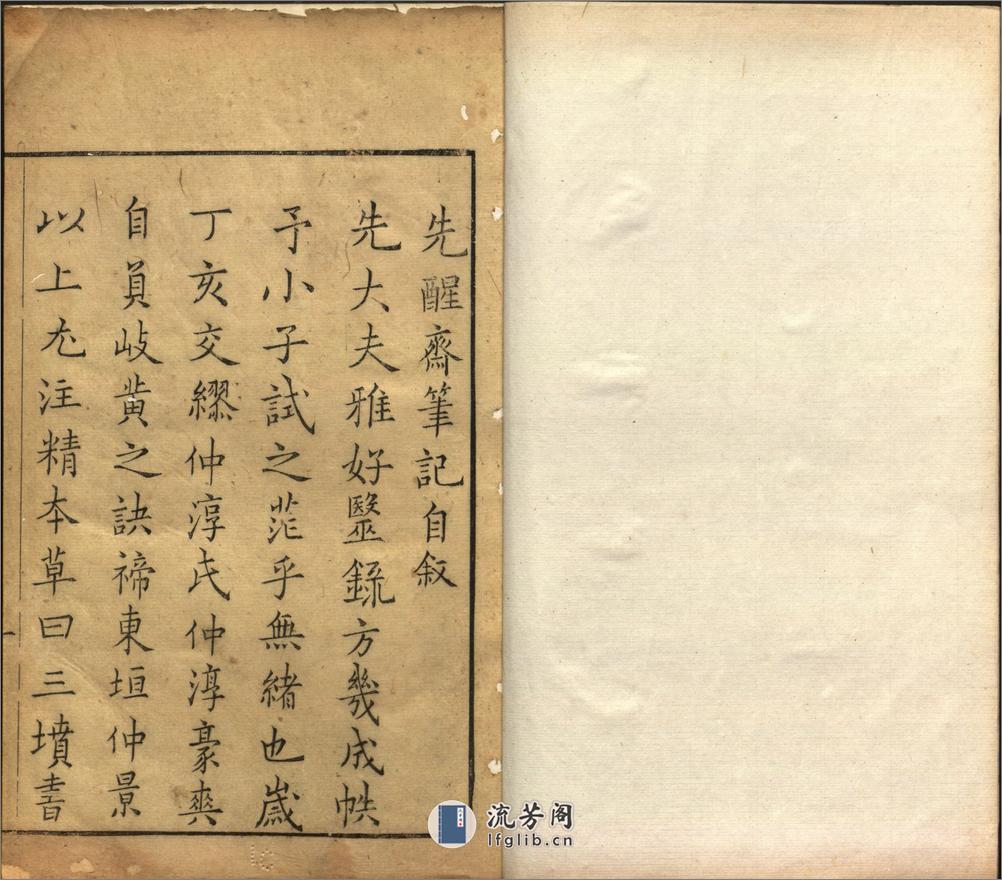 先醒齋筆記自叙
先大夫雅好毉録方幾成帙
予小子試之茫乎無緒也歲
丁亥交繆仲淳氏仲淳豪爽
自負岐黄之訣禘東垣仲景
以上尤注精本草曰三墳書
流芳阁
lfglib.cn